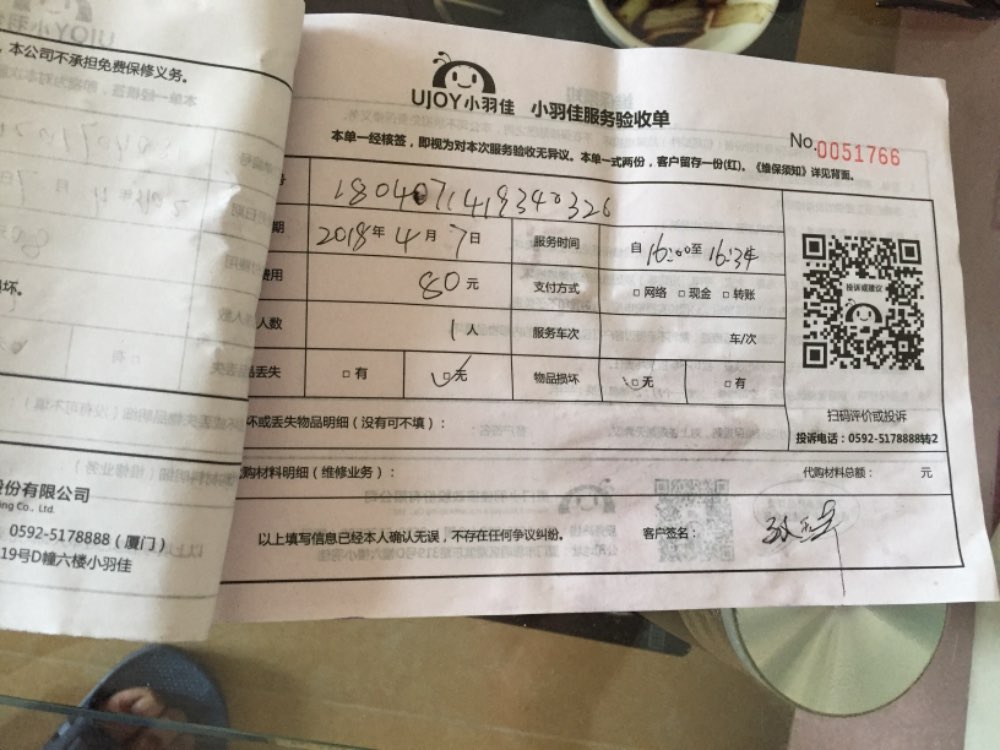 本公司不承担免费保修义务。
UJOY小羽佳 小羽佳服务验收单
No.0051766
本单一经核签，即视为对本次服务验收无异议。本单一式两份，客户留存一份(红)。《维保须知》详见背面。
1804071419340326
期 2018年4月7日 服务时间 自16:00至16:34
费用 80元 支付方式 □网络 □现金 □转账
人数 1人 服务车次 车/次
品丢失 □有 □无 物品损坏 □无 □有
投诉或建议
扫码评价或投诉
投诉电话：0592-5178888转2
坏或丢失物品明细（没有可不填）：
购材料明细（维修业务）： 代购材料总额： 元
以上填写信息已经本人确认无误，不存在任何争议纠纷。 客户签名：
坏。
份有限公司
ing Co., Ltd.
0592-5178888（厦门）
19号D幢六楼小羽佳